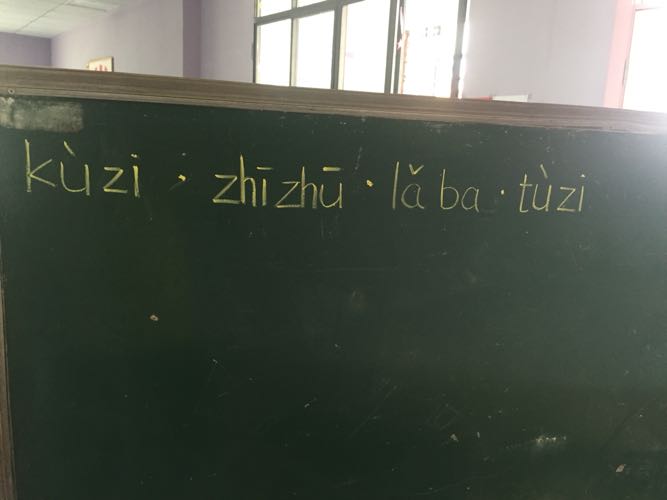 kùzi · zhīzhū · lǎba · tùzi